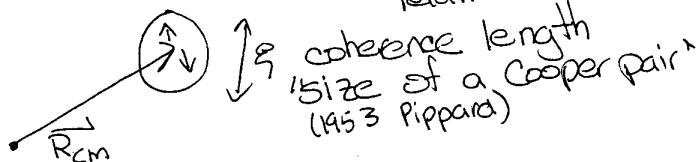 ξ coherence length
"size of a Cooper pair"
(1953 Pippard)
R_cm